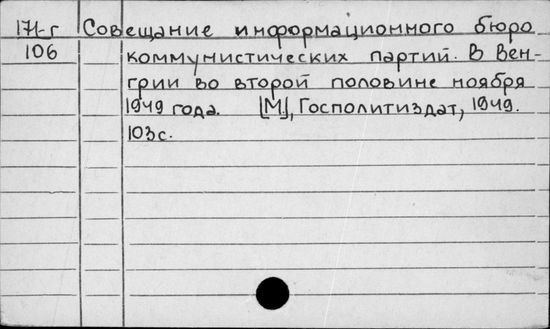 171-г Совещание информационного бюро
106 коммунистических партий. В Вен-
грии во второй половине ноября
1949 года. [М], Госполитиздат, 1949.
103с.